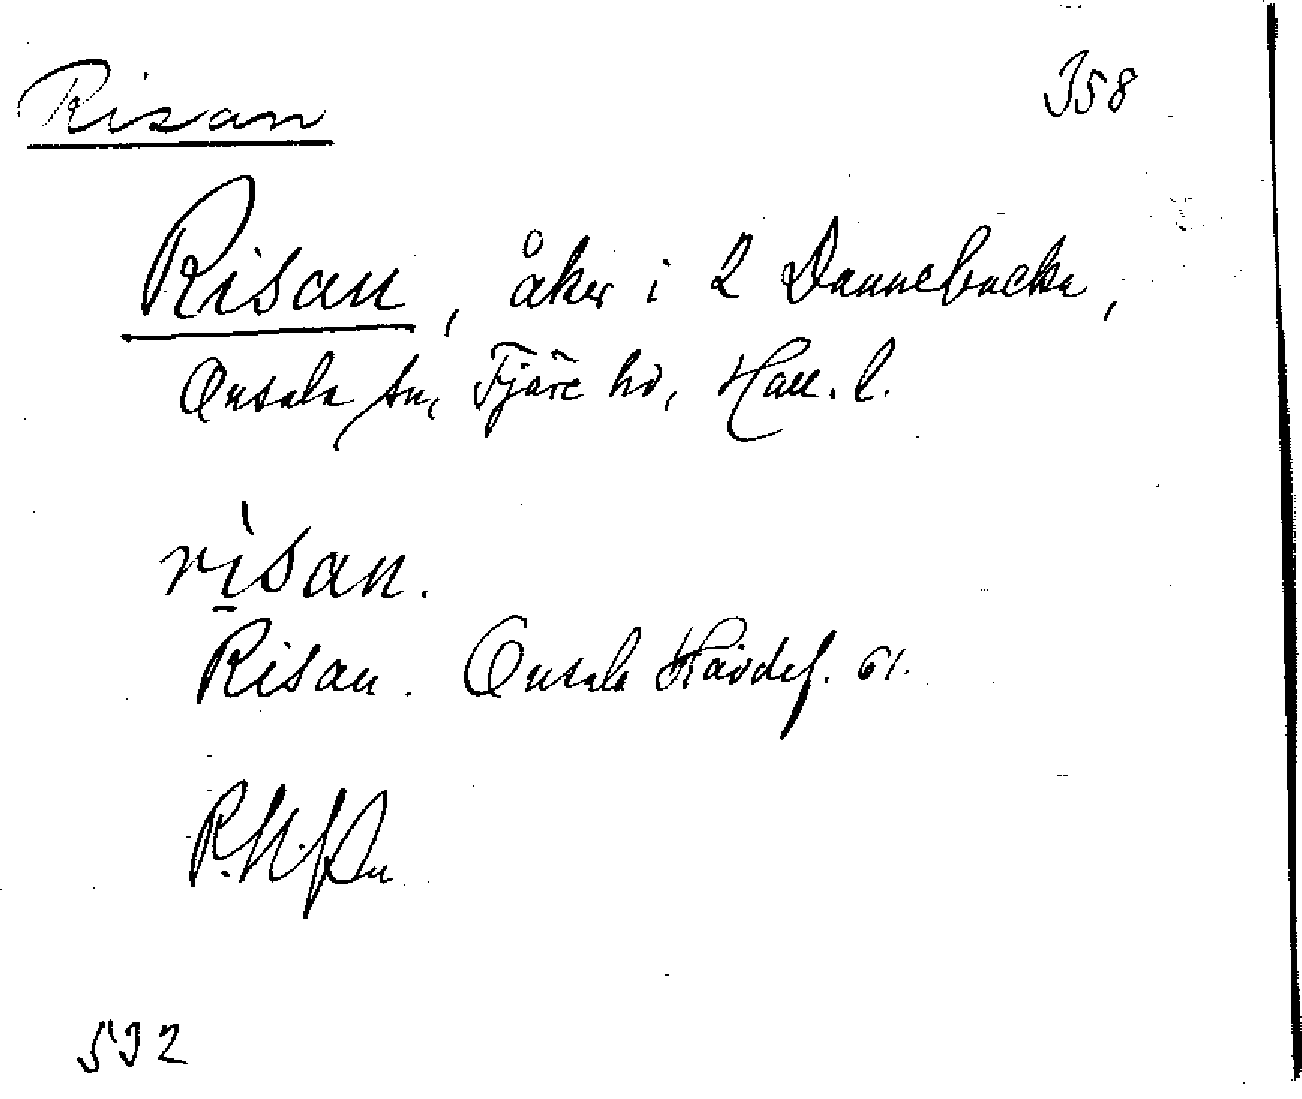 Risan
358
Risan, åker i 2 Dannebacka,
Onsala sn, Fjäre hd, Hall. l.
rìsan.
Risan. Onsala Hävdef. 61.
532